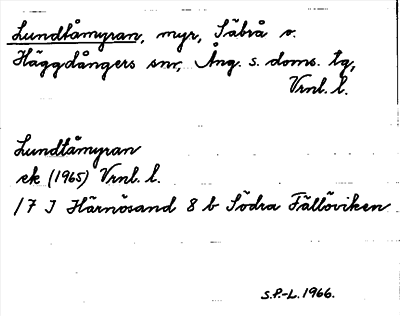 Lundtåmyran, myr, Säbrå o.
Häggdångers snr, Ång. s. doms. tg,
Vrnl. l.
Lundtåmyran
ek (1965) Vrnl. l.
17 J Härnösand 8 b Södra Fällöviken
S.P.-L. 1966.